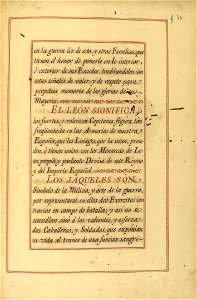 en la guerra los de esta, y otras Familias, que
tienen el honor de ponerle en lo interior,
ó exterior de sus Escudos, timbrandolos con
estas señales de valor, y de respeto para
perpetua memoria de las glorias de sus
Mayores.
EL LEÓN SIGNIFICA
los fuertes, y valerosos Capitanes, figura tan
freqüentada en las Armerias de nuestra
España, que los Linages, que la usan, proce-
den, ó tienen union con los Monarcas de Le-
on, propio, y parlante Divisa de este Reyno
y del Imperio Español.
LOS JAQUELES SON
Simbolo de la Milicia, y arte de la guerra,
por representarse en ellos dos Exercitos con-
trarios en campo de batalla; y asi no se
concedian sino á los valientes, y esforza-
dos Caballeros, y Soldados, que exponian
su vida al trance de una funcion sangri-